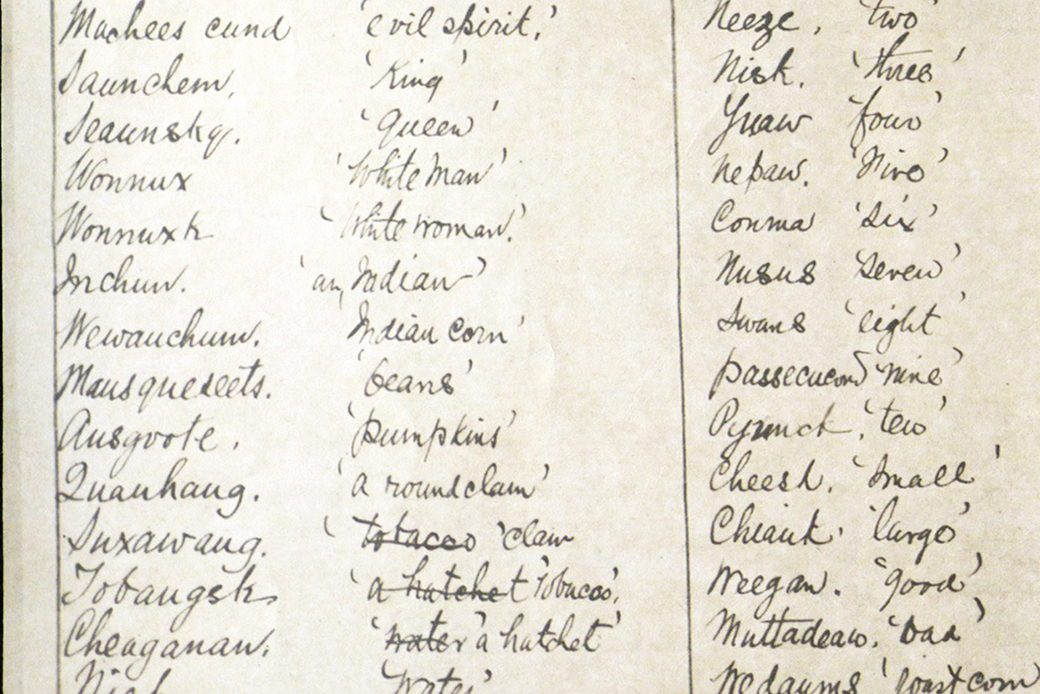 Machees cund 'evil spirit.'
Saunchem, 'King'
Seaunsky. 'Queen'
Wonnux 'White man'
Wonnuxk 'White woman.'
Inchun. 'an, Indian'
Wewauchum. 'Indian corn'
Mausqueseets. 'beans'
Ausgoote. 'pumpkins'
Quauhaug. 'a round clam'
Suxawaug. 'tobacco 'clam
Tobaugsk. 'a hatchet 'Tobacco'.
Cheaganan. 'water 'a hatchet'
'Water'
Neeze, 'two'
Nisk. 'three'
Yuaw 'four'
nepaw. 'Five'
Conma 'six'
Nusus 'seven'
Swans 'eight'
passecucond 'nine'
Pyunck, 'ten'
Cheesk. 'small'
Chiauk. 'large'
Weegan. 'good'
Muttadeaw. 'bad'
Wedaums 'roast corn